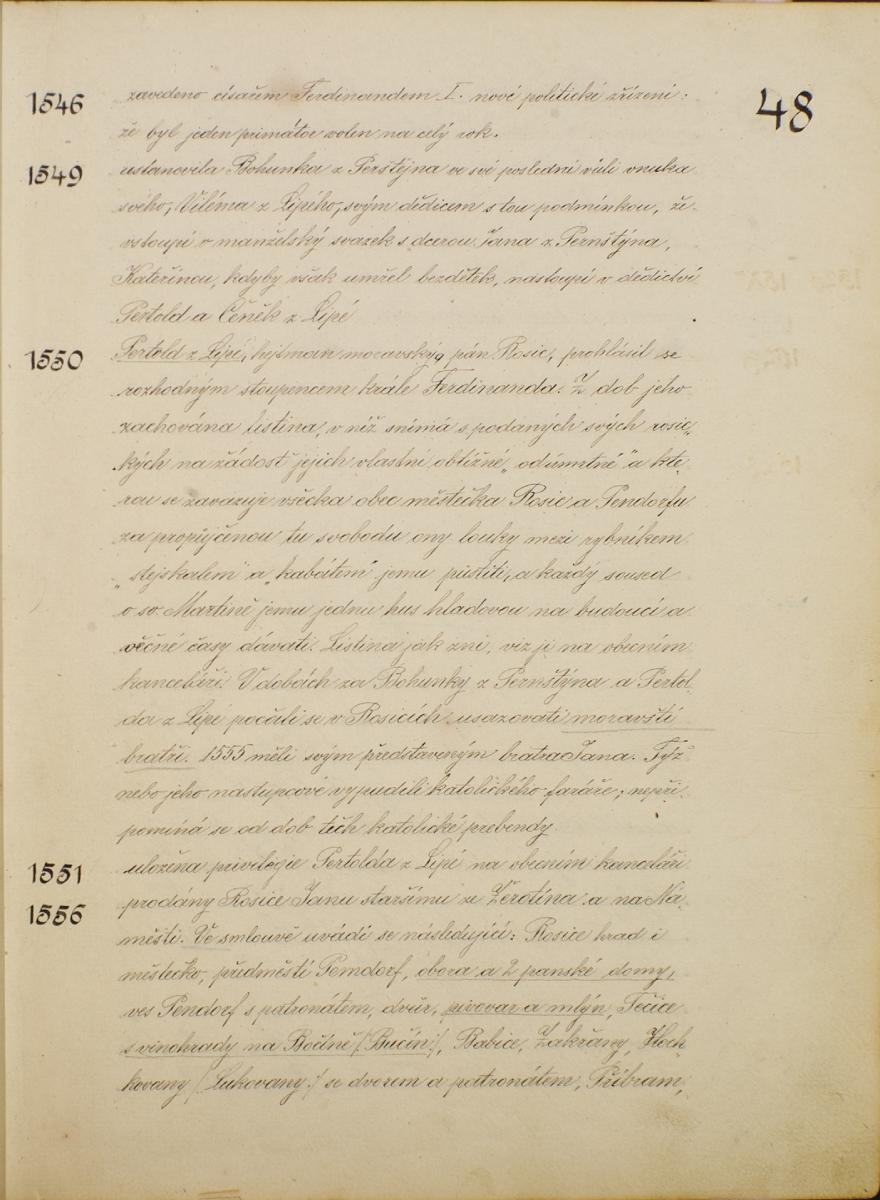 48
1546 zavedeno císařem Ferdinandem I. nové politické zřízení:
že byl jeden primátor volen na celý rok.
1549 ustanovila Bohunka z Perštejna ve své poslední vůli vnuka
svého, Viléma z Lipého, svým dědicem s tou podmínkou, že
vstoupí v manželský svazek s dcerou Jana z Pernštýna,
Kateřinou, kdyby však umřel bezdětek, nastoupí v dědictví
Pertold a Čeněk z Lipé
1550 Pertold z Lipé, hejtman moravský, pán Rosic, prohlásil se
rozhodným stoupencem krále Ferdinanda. Z dob jeho
zachována listina, v níž snímá s podaných svých rosic„
kých na žádost jejich vlastní obtížné „odúmrtné" a kte„
rou se zavazuje všecka obec městečka Rosic a Pendorfu
za propůjčenou tu svobodu ony louky mezi rybníkem
„stejskalem" a „kabátem" jemu pustiti, a každý soused
o sv. Martině jemu jednu hus hladovou na budoucí a
věčné časy dávati. Listina jak zní, viz ji na obecním
kanceláři. V dobách za Bohunky z Pernštýna a Pertol„
da z Lipé počali se v Rosicích usazovati moravští
bratři. 1555 měli svým představeným bratra Jana. Týž
nebo jeho nastupcové vypudili katolického faráře, nepři„
pomíná se od dob těch katolické prebendy.
1551 uložena privilegie Pertolda z Lipé na obecním kanceláři
1556 prodány Rosice Janu staršímu ze Žerotína a na Ná„
měšti. Ve smlouvě uvádí se následující: Rosice hrad i
městečko, předměstí Pemdorf, obora a 2 panské domy,
ves Pendorf s patronátem, dvůr, pivovar a mlýn, Tečice
s vinohrady na Bočíně /:Bučín:/, Babice, Zakřany, Hloch„
kovany /:Lukovany:/ se dvorem a patronátem, Příbram,